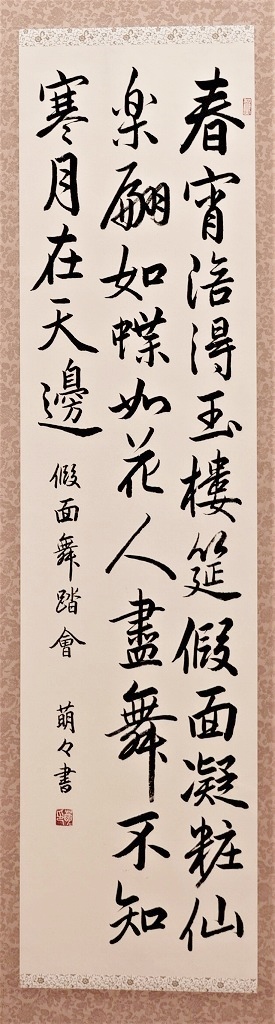 春宵陪得玉樓筵假面凝粧仙
楽翩如蝶如花人盡舞不知
寒月在天邊
假面舞踏會
萌々書